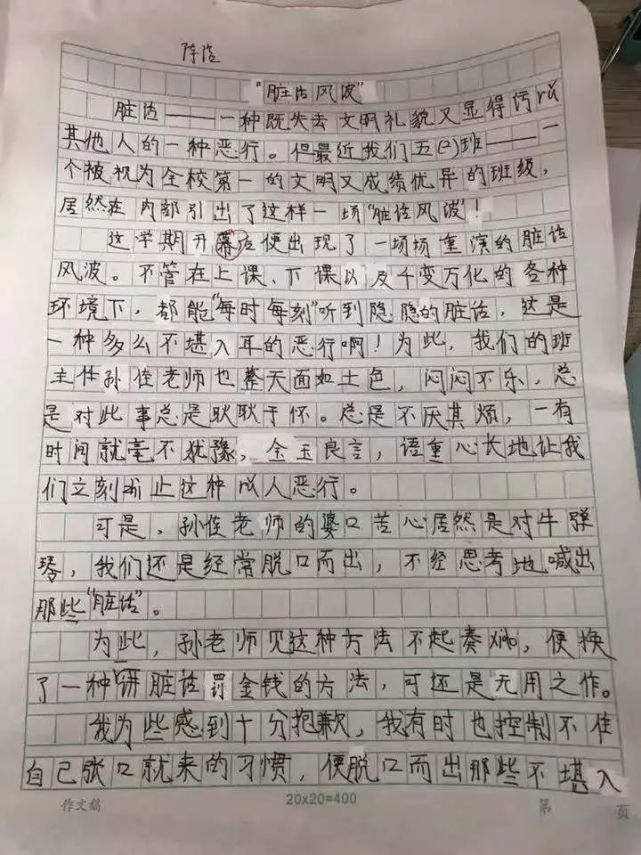 陈洁
"脏话风波"
脏话——一种既失去文明礼貌又显得污rǔ
其他人的一种恶行。但最近我们五(二)班——一
个被视为全校第一的文明又成绩优异的班级，
居然在内部引出了这样一场"脏话风波"!
这学期开幕后便出现了一场场重演的脏话
风波。不管在上课、下课以及千变万化的各种
环境下，都能"每时每刻"听到隐隐的脏话，这是
一种多么不堪入耳的恶行啊！为此，我们的班
主任孙佳老师也整天面如土色，闷闷不乐，总
是对此事总是耿耿于怀。总是不厌其烦，一有
时间就毫不犹豫，金玉良言，语重心长地让我
们立刻制止这种以人恶行。
可是，孙佳老师的婆口苦心居然是对牛弹
琴，我们还是经常脱口而出，不经思考地喊出
那些"脏话"。
为此，孙老师见这种方法不起奏xiào，便换
了一种"讲脏话罚金钱的方法，可还是无用之作。
我为些感到十分抱歉，我有时也控制不住
自己张口就来的习惯，便脱口而出那些不堪入
作文稿
20x20=400
第 页